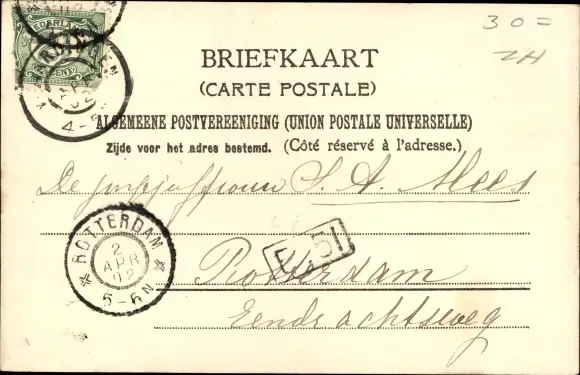 30=
ZH
NEDERLAND
BRIEFKAART
(CARTE POSTALE)
4-5
ALGEMEENE POSTVEREENIGING (UNION POSTALE UNIVERSELLE)
Zijde voor het adres bestemd. (Côté réservé à l'adresse.)
De jonkjuffrouw S. A. Mees
ROTTERDAM
2
APR
02
5-6N
F. 51
Rotterdam
Eendrachtsweg